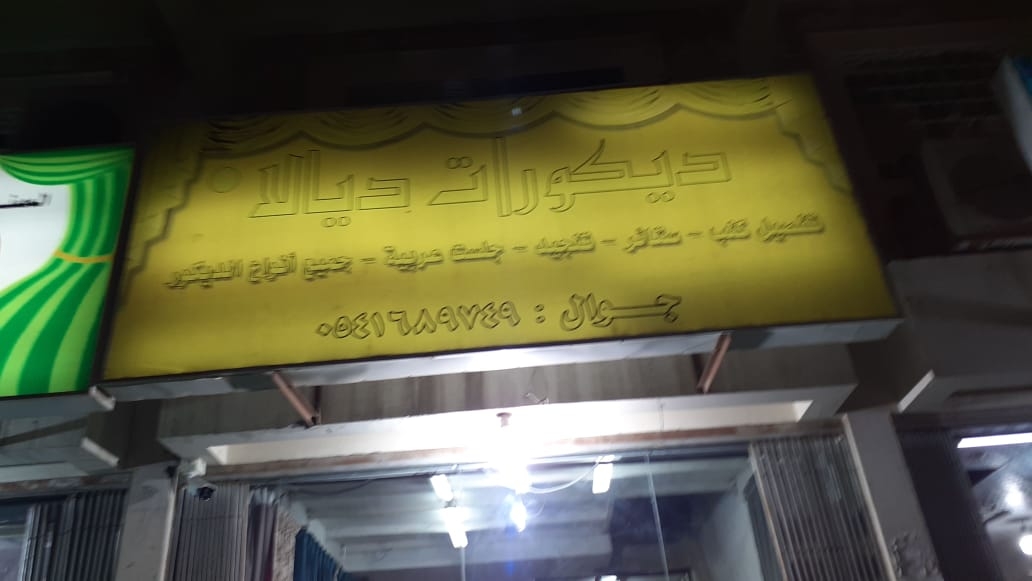 ديكورات ديالا
تفصيل كنب - ستائر - تنجيد - جلسات عربية - جميع أنواع الديكور
جـــوال : ٠٥٤١٦٨٩٧٤٩